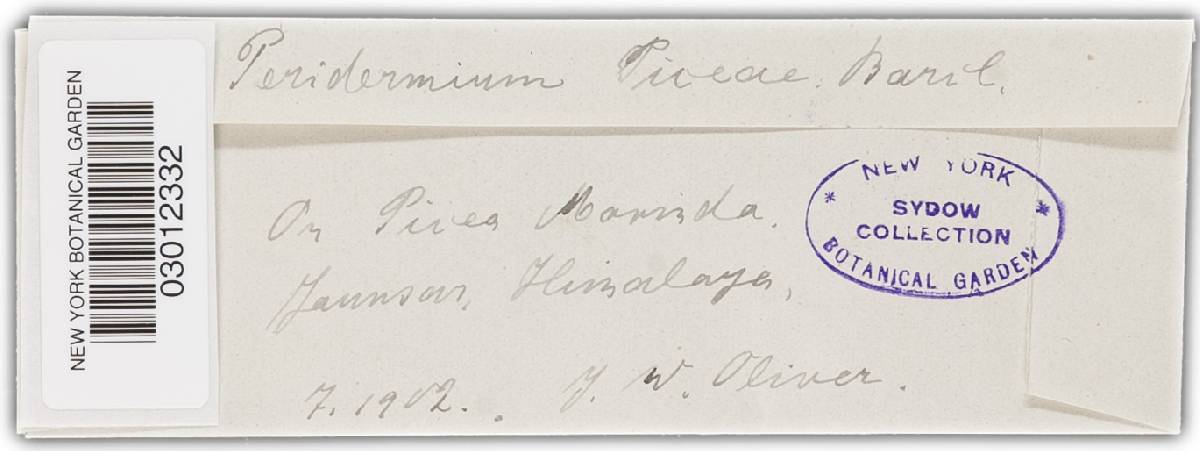 NEW YORK BOTANICAL GARDEN
03012332
Peridermium Piceae Barcl.
On Picea Morinda.
Jaunsar, Himalaya,
7.1902. J. W. Oliver.
NEW YORK
* SYDOW *
COLLECTION
BOTANICAL GARDEN